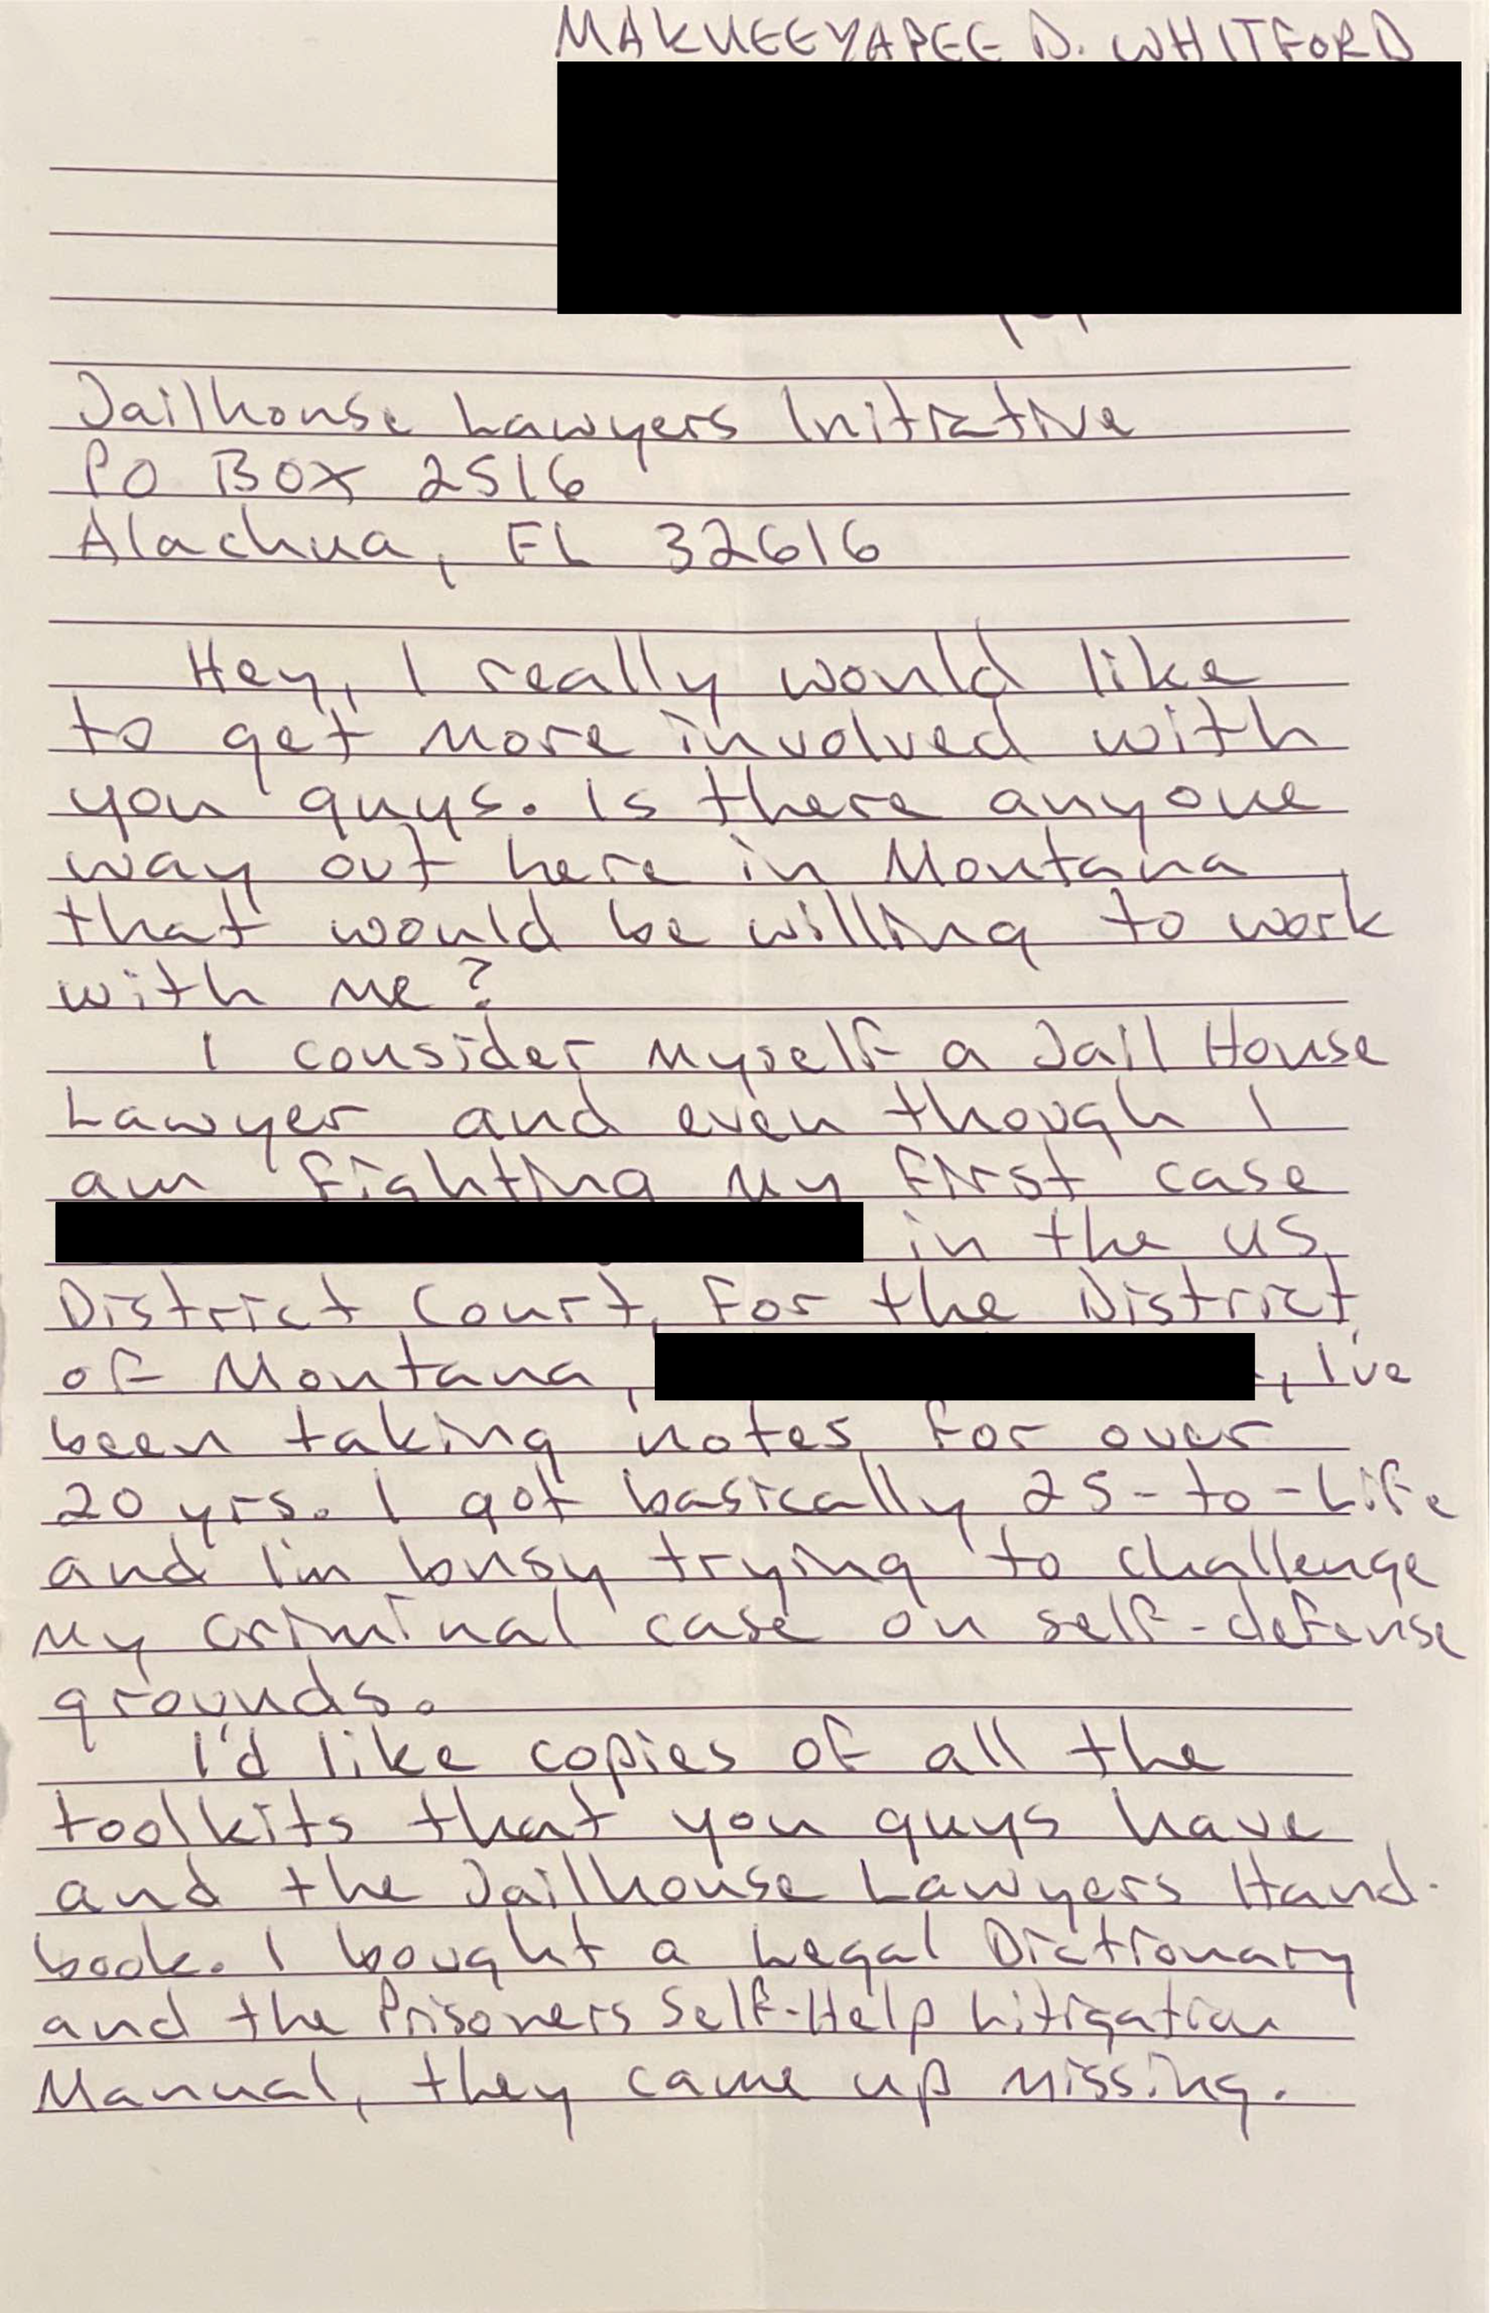 MAKUEEYAPEE D. WHITFORD
Jailhouse Lawyers Initiative
PO BOX 2516
Alachua, FL 32616
Hey, I really would like
to get more involved with
you guys. Is there anyone
way out here in Montana
that would be willing to work
with me?
I consider myself a Jail House
Lawyer and even though I
am fighting my first case
in the US
District Court, For the District
of Montana, , I've
been taking notes for over
20 yrs. I got basically 25-to-Life
and I'm busy trying to challenge
my criminal case on self-defense
grounds.
I'd like copies of all the
toolkits that you guys have
and the Jailhouse Lawyers Hand-
book. I bought a Legal Dictionary
and the Prisoners Self-Help Litigation
Manual, they came up missing.